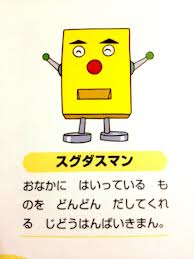 スグダスマン
おなかに はいっている も
のを どんどん だしてくれ
る じどうはんばいきまん。